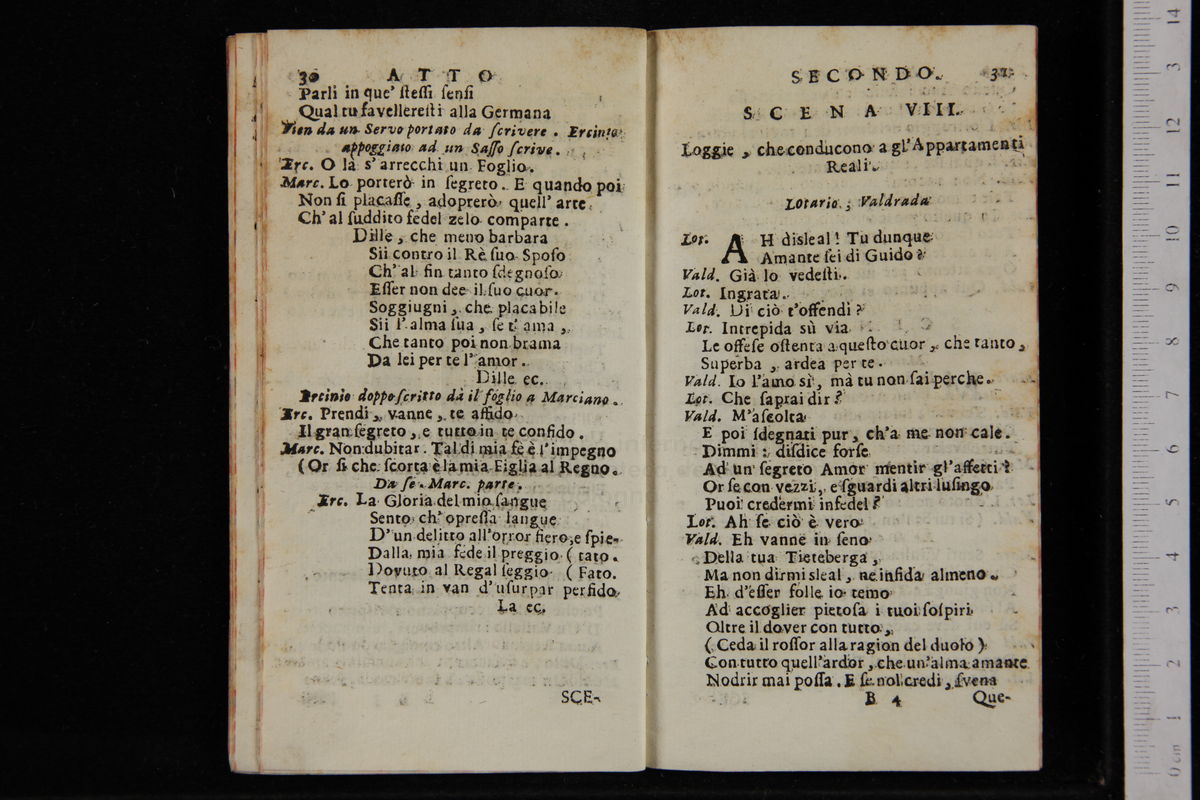 30 ATTO
Parli in que' steſſi ſenſi
Qual tu favellereſti alla Germana
Vien da un Servo portato da ſcrivere. Ercinio
appoggiato ad un Saſſo ſcrive.
Erc. O là s'arrecchi un Foglio.
Marc. Lo porterò in ſegreto. E quando poi
Non ſi placaſſe, adopterò quell' arte
Ch'al ſuddito fedel zelo comparte.
Dille, che meno barbara
Sii contro il Rè ſuo Spoſo
Ch' al fin tanto ſdegnoſo
Eſſer non dee il ſuo cuor.
Soggiugni, che placabile
Sii l'alma ſua, ſe t' ama,
Che tanto poi non brama
Da lei per te l' amor.
Dille ec.
Ercinio doppo ſcritto dà il foglio a Marciano.
Erc. Prendi, vanne, te affido
Il gran ſegreto, e tutto in te confido.
Marc. Non dubitar. Tal di mia fè è l'impegno
(Or ſi che ſcorta è la mia Figlia al Regno.
Da ſe. Marc. parte.
Erc. La Gloria del mio ſangue
Sento ch' opreſſa langue
D'un delitto all'orror fiero, e ſpie-
Dalla mia fede il preggio (tato.
Dovuto al Regal ſeggio (Fato.
Tenta in van d'uſurpar perfido
La ec.
SCE-
SECONDO. 31
SCENA VIII.
Loggie, che conducono a gl'Appartamenti
Reali.
Lotario, Valdrada
Lot. AH disleal! Tu dunque
Amante ſei di Guido?
Vald. Già lo vedeſti.
Lot. Ingrata.
Vald. Di ciò t'offendi?
Lot. Intrepida sù via
Le offeſe oſtenta a queſto cuor, che tanto,
Superba, ardea per te.
Vald. Io l'amo sì, mà tu non ſai perche.
Lot. Che ſaprai dir?
Vald. M'aſcolta
E poi ſdegnati pur, ch'a me non cale.
Dimmi: diſdice forſe
Ad un ſegreto Amor mentir gl'affetti?
Or ſe con vezzi, e ſguardi altri luſingo
Puoi credermi infedel?
Lot. Ah ſe ciò è vero
Vald. Eh vanne in ſeno
Della tua Tieteberga,
Ma non dirmi sleal, ne infida almeno.
Eh d'eſſer folle io temo
Ad accoglier pietoſa i tuoi ſoſpiri
Oltre il dover con tutto,
(Ceda il roſſor alla ragion del duolo)
Con tutto quell'ardor, che un'alma amante
Nodrir mai poſſa. E ſe nol credi, ſvena
B 4 Que-